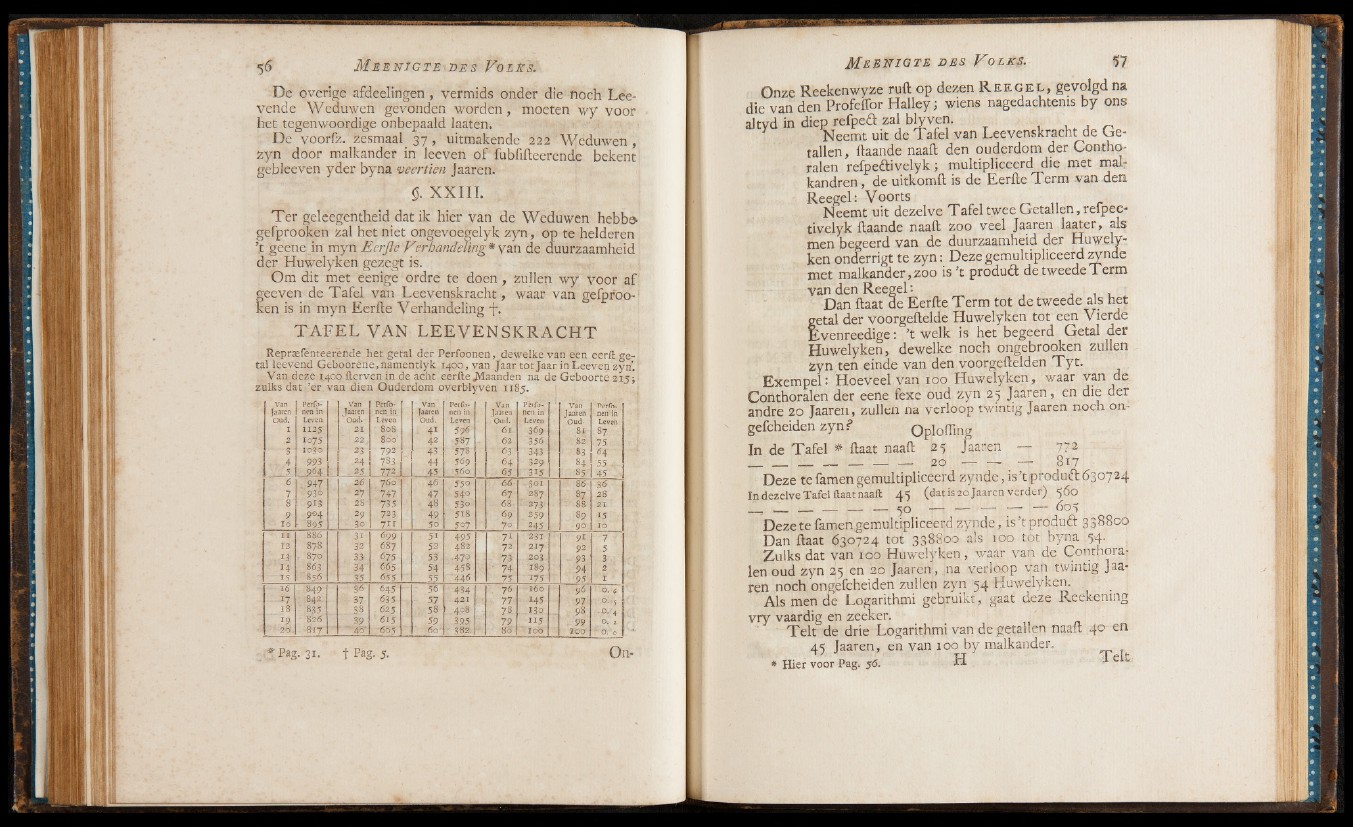 56 MEENIGTE DES VOLKS.
De overige afdeelingen, vermids onder die noch Lee-
vende Weduwen gevonden worden, moeten wy voor
het tegenwoordige onbepaald laaten.
De voorſz. zesmaal 37, uitmakende 222 Weduwen,
zyn door malkander in leeven of ſubſiſteerende bekent
gebleeven yder byna veertien Jaaren.
§. XXIII.
Ter geleegentheid dat ik hier van de Weduwen hebbe
geſprooken zal het niet ongevoegelyk zyn, op te helderen
't geene in myn Eerſte Verhandeling * van de duurzaamheid
der Huwelyken gezegt is.
Om dit met eenige ordre te doen, zullen wy voor af
geeven de Tafel van Leevenskracht, waar van geſproo-
ken is in myn Eerſte Verhandeling †.
TAFEL VAN LEEVENSKRACHT
Repræſenteerende het getal der Perſoonen, dewelke van een eerſt ge-
tal leevend Geboorene, namentlyk 1400, van Jaar tot Jaar in Leeven zyn.
Van deze 1400 ſterven in de acht eerſte Maanden na de Geboorte 215;
zulks dat 'er van dien Ouderdom overblyven 1185.
Van Perſo- Van Perſo- Van Perſo- Van Perſo- Van Perſo-
Jaaren nen in Jaaren nen in Jaaren nen in Jaaren nen in Jaaren nen in
Oud. Leven Oud. Leven Oud. Leven Oud. Leven Oud Leven
1 1125 21 808 41 596 61 369 81 87
2 1075 22 800 42 587 62 356 82 75
3 1030 23 792 43 578 63 343 83 64
4 993 24 783 44 569 64 329 84 55
5 964 25 772 45 560 65 315 85 45
6 947 26 760 46 550 66 301 86 36
7 930 27 747 47 540 67 287 87 28
8 913 28 735 48 530 68 273 88 21
9 904 29 723 49 518 69 259 89 15
10 895 30 711 50 507 70 245 90 10
11 886 31 699 51 495 71 231 91 7
12 878 32 687 52 482 72 217 92 5
13 870 33 675 53 470 73 203 93 3
14 863 34 665 54 458 74 189 94 2
15 856 35 655 55 446 75 175 95 1
16 849 36 645 56 434 76 160 96 0.
17 842 37 635 57 421 77 145 97 0.
18 835 38 625 58 408 78 130 98 0.
19 826 39 615 59 395 79 115 99 0.
20 817 40 605 60 382 80 100 100 0.
* Pag. 31. † Pag. 5. On-
MEENIGTE DES VOLKS. 57
Onze Reekenwyze ruſt op dezen REEGEL, gevolgd na
die van den Profeſſor Halley; wiens nagedachtenis by ons
altyd in diep reſpect zal blyven.
Neemt uit de Tafel van Leevenskracht de Ge-
tallen, ſtaande naaſt den ouderdom der Contho-
ralen reſpectivelyk; multipliceerd die met mal-
kandren, de uitkomſt is de Eerſte Term van den
Reegel: Voorts
Neemt uit dezelve Tafel twee Getallen, reſpec-
tivelyk ſtaande naaſt zoo veel Jaaren laater, als
men begeerd van de duurzaamheid der Huwely-
ken onderrigt te zyn: Deze gemultipliceerd zynde
met malkander, zoo is 't product de tweede Term
van den Reegel:
Dan ſtaat de Eerſte Term tot de tweede als het
getal der voorgeſtelde Huwelyken tot een Vierde
Evenreedige: 't welk is het begeerd Getal der
Huwelyken, dewelke noch ongebrooken zullen
zyn ten einde van den voorgeſtelden Tyt.
Exempel: Hoeveel van 100 Huwelyken, waar van de
Conthoralen der eene ſexe oud zyn 25 Jaaren, en die der
andre 20 Jaaren, zullen na verloop twintig Jaaren noch on-
geſcheiden zyn?
Oploſſing
In de Tafel * ſtaat naaſt 25 Jaaren — 772
— — — — — — — 20 — — — 817
Deze te ſamen gemultipliceerd zynde, is 't product 630724
In dezelve Tafel ſtaat naaſt 45 (dat is 20 Jaaren verder) 560
— — — — — — 50 — — — — — 605
Deze te ſamen gemultipliceerd zynde, is 't product 338800
Dan ſtaat 630724 tot 338800 als 100 tot byna 54.
Zulks dat van 100 Huwelyken, waar van de Conthora-
len oud zyn 25 en 20 Jaaren, na verloop van twintig Jaa-
ren noch ongeſcheiden zullen zyn 54 Huwelyken.
Als men de Logarithmi gebruikt, gaat deze Reekening
vry vaardig en zeeker.
Telt de drie Logarithmi van de getallen naaſt 40 en
45 Jaaren, en van 100 by malkander.
* Hier voor Pag. 56. H Telt